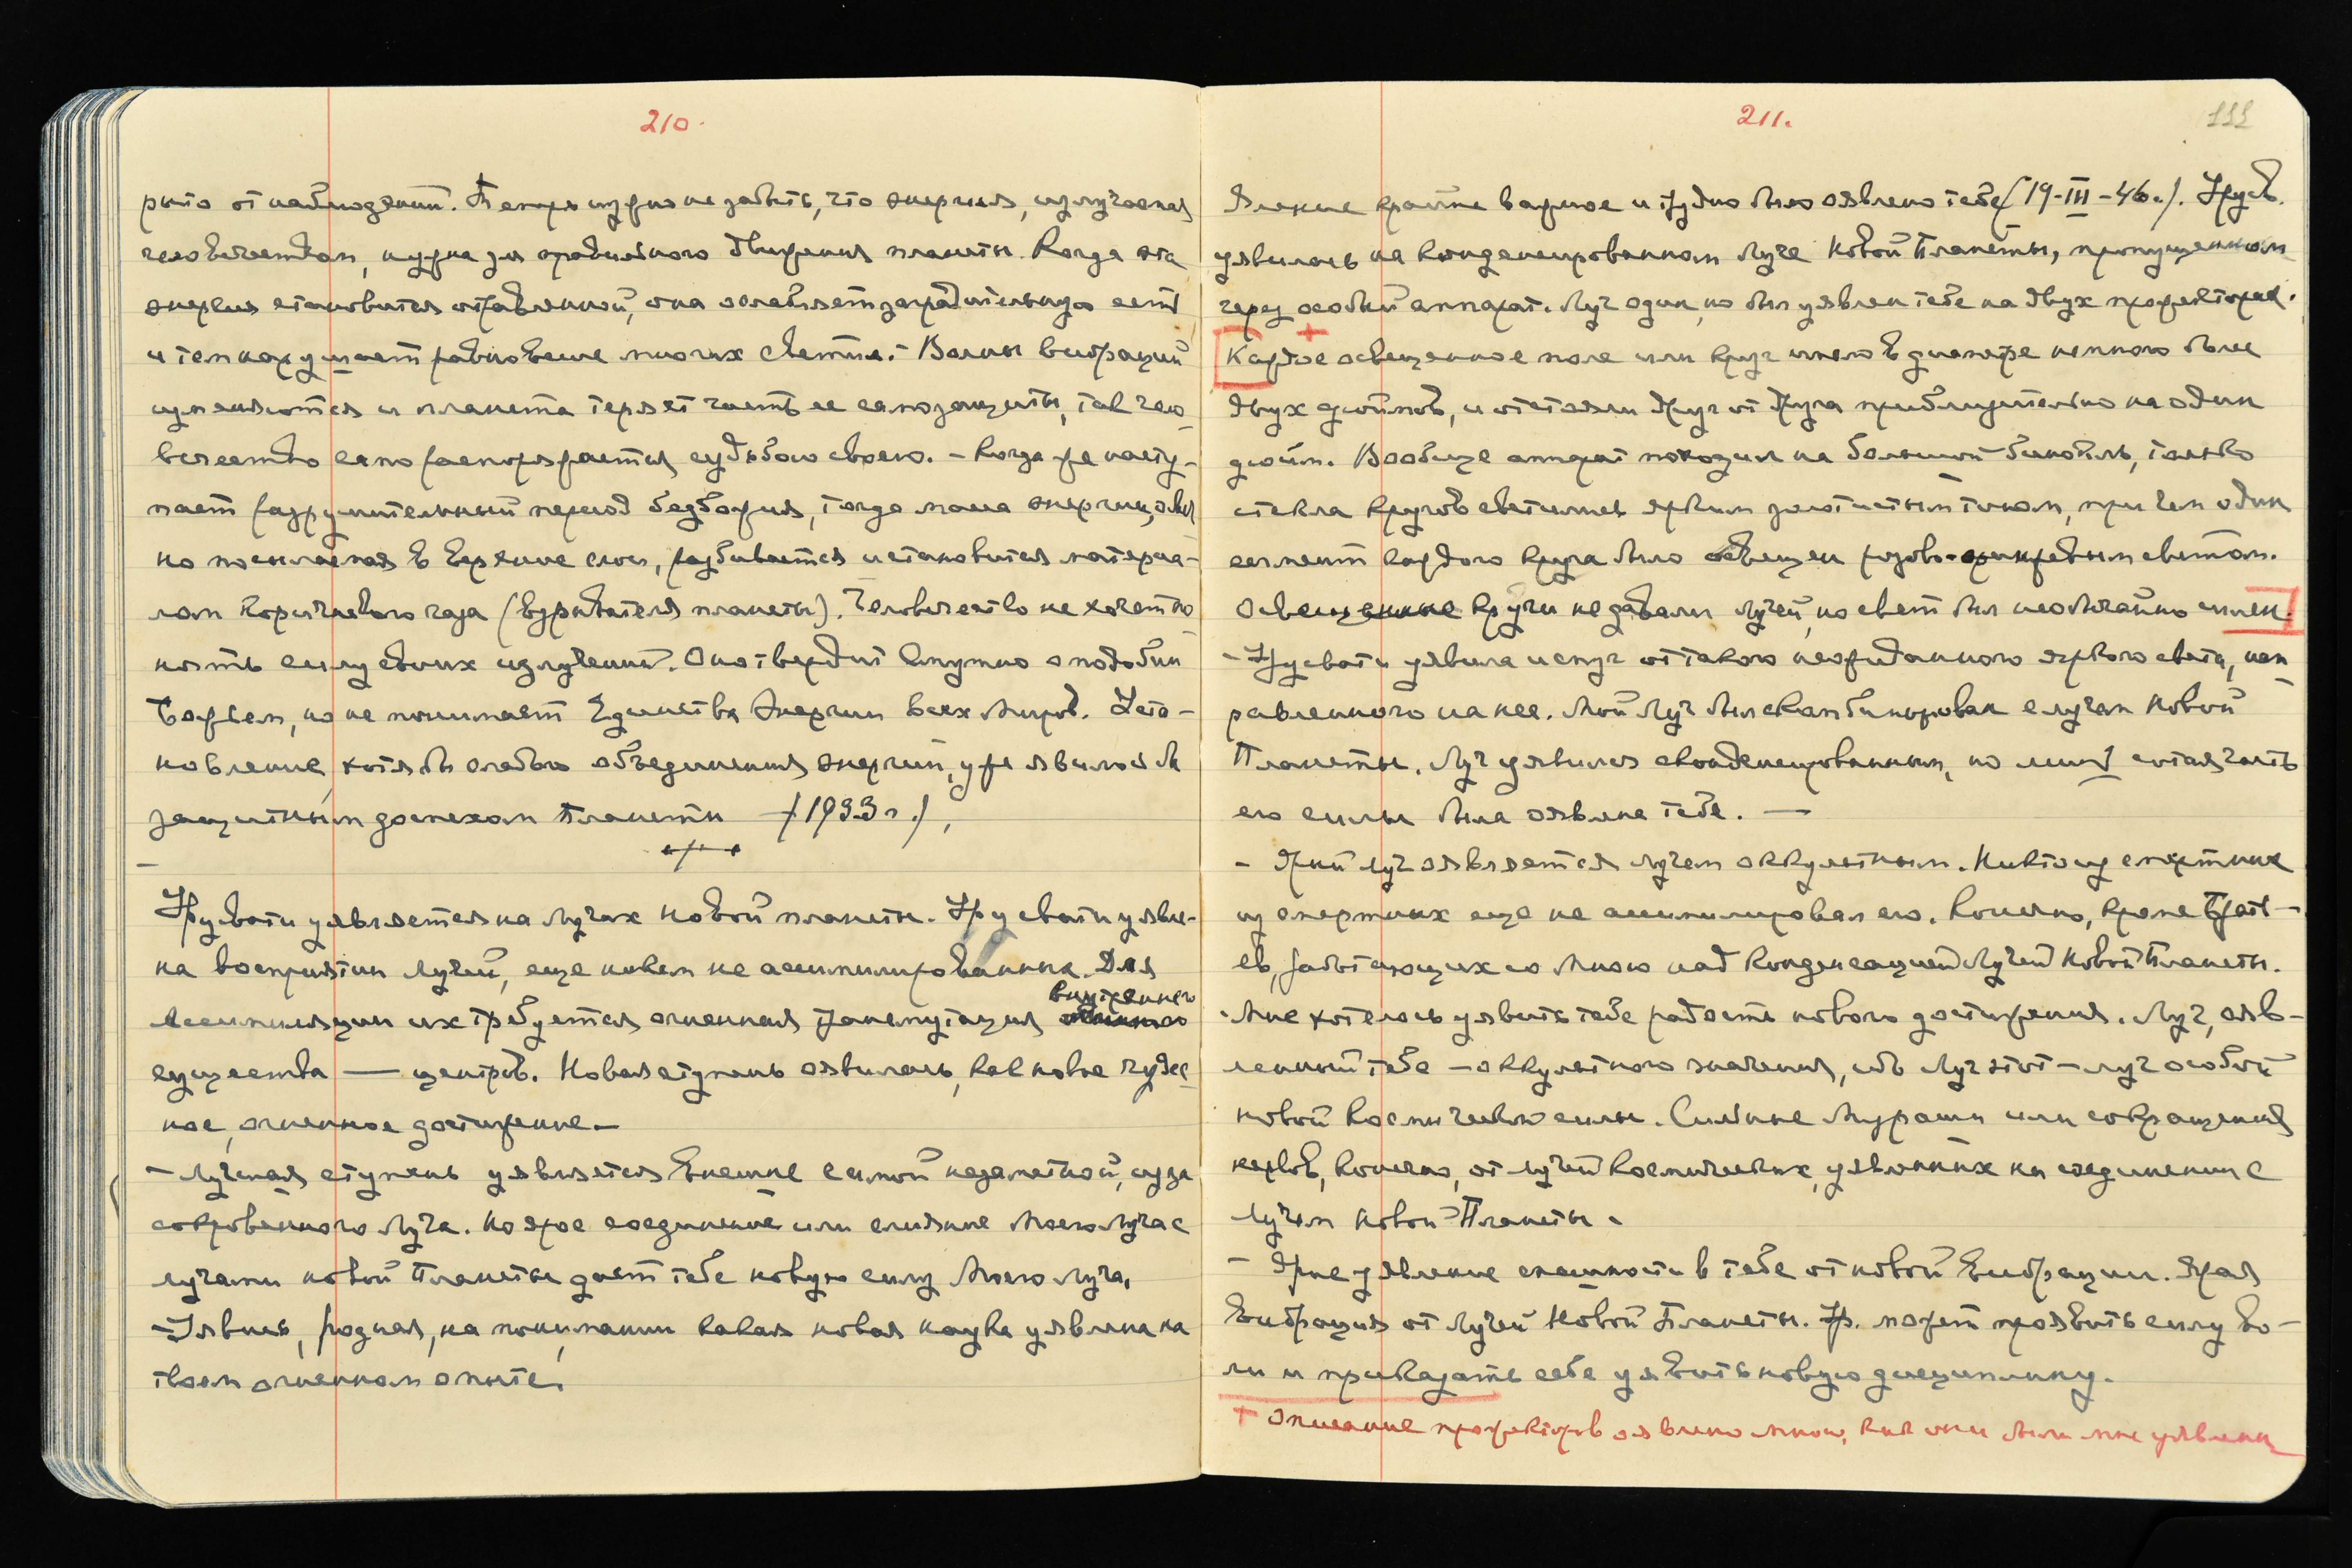 210.
рыто от наблюдений. Теперь нужно не забыть, что энергия, излучаемая
человечеством, нужна для правильного движения планеты. Когда эта
энергия становится отравленной, она ослабляет заградительную сеть
и тем нарушает равновесие многих светил. – Волны вибраций
изменяются и планета теряет часть ее самозащиты, так чело-
вечество само распоряжается судьбою своею. – Когда же насту-
пает разрушительный период безбожия, тогда масса энергии,
но посылаемая в верхние слои, разбивается и становится материа-
лом коричневого газа (взрывателя планеты). Человечество не хочет по-
нять силу своих излучений. Оно твердит смутно о подобии
Божьем, но не понимает Единства Энергии всех Миров. Уста-
новление, хотя бы слабого объединения энергий, уже явилось бы
защитным доспехом Планеты (1933 г.),
Урусвати уявляется на Лучах новой планеты. Урусвати уявле-
на восприятии Лучей, еще никем не ассимилированных. Для
внутреннего
ассимиляции их требуется огненная трансмутация
существа — центров. Новая ступень оявилась, как новое чудес-
ное, огненное достижение –
– Лучшая ступень уявляется внешне самой незаметной,
сокровенного Луча. Но ярое соединение или слияние Моего Луча с
лучами новой Планеты дает тебе новую силу Моего Луча,
– Уявись, родная, на понимании какая новая наука уявлена на
твоем огненном опыте.
211.
111
Явление крайне важное и трудно было оявлено тебе (19-III-46.). Урусв.
уявилась на конденсированном Луче Новой Планеты, пропущенном
через особый аппарат. Луч один, но был уявлен тебе на двух прожекторах.
Каждое освещенное поле или круг имело в диаметре немного более
двух дюймов, и отстояли друг от друга приблизительно на один
дюйм. Вообще аппарат походил на большой бинокль, только
стекла кругов светились ярким золотистым тоном, при чем один
сегмент каждого круга было освещен розово-оранжевым светом.
Освещенные круги не давали лучей, но свет был необычайно силен.
– Урусвати уявила испуг от такого неожиданного яркого света, нап-
равленного на нее. Мой Луч был скомбинирован с лучами Новой
Планеты. Луч уявился сконденсированным, но лишь сотая часть
его силы была оявлена тебе. —
– Ярый луч оявляется лучем оккультным. Никто из смертных
из смертных еще не ассимилировал его. Конечно, кроме Брать-
ев, работающих со Мною над конденсацией Лучей Новой Планеты.
Мне хотелось уявить тебе радость нового достижения. Луч, ояв-
ленный тебе – оккультного значения, ибо Луч этот – луч особой
новой космической силы. Сильные мурашки или сокращения
нервов, конечно, от лучей космических, уявленных на соединении с
Лучем Новой Планеты.
– Ярое уявление спешности в тебе от новой вибрации. Ярая
вибрация от Лучей Новой Планеты. Ур. может проявить силу во-
ли и приказать себе уявить новую дисциплину.
+ Описание прожекторов оявлено мною, как они были мне уявлены